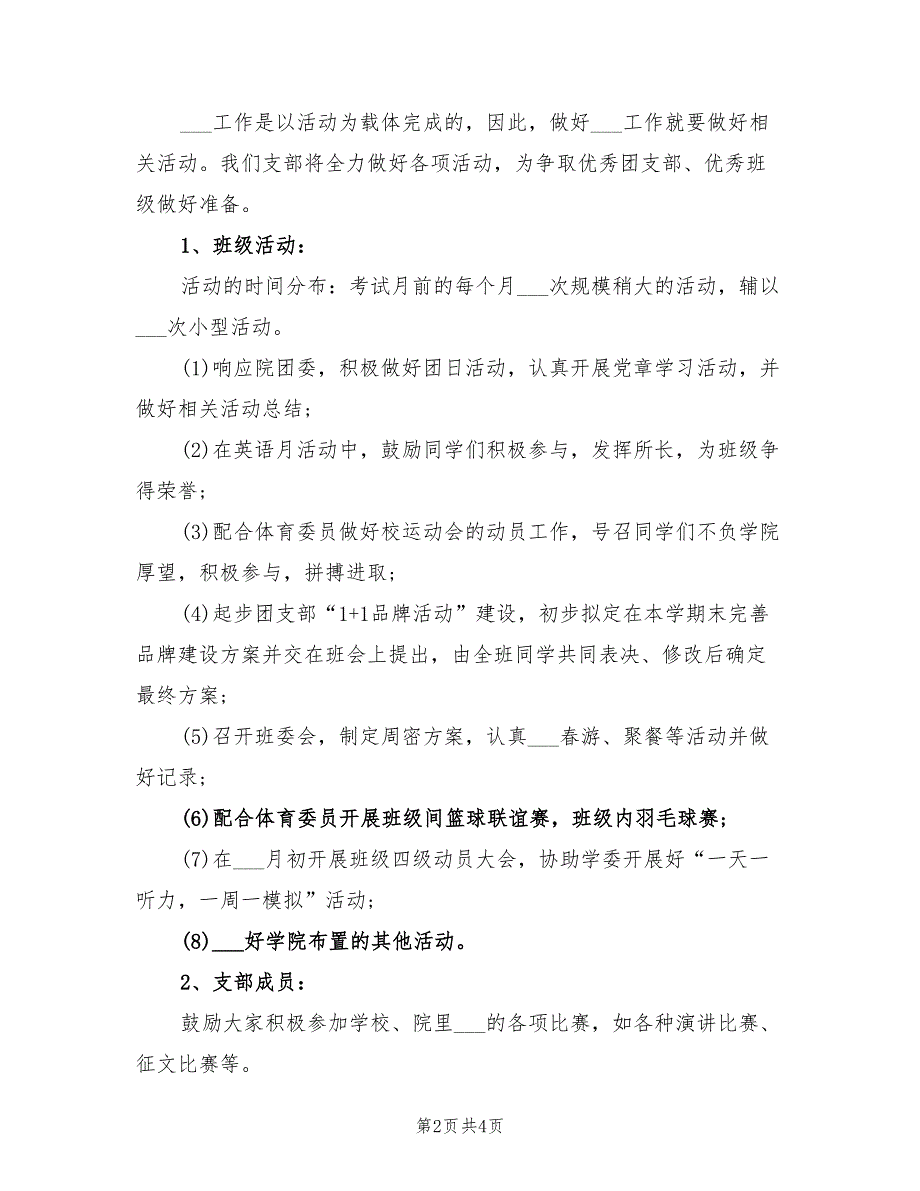 ___工作是以活动为载体完成的，因此，做好___工作就要做好相
关活动。我们支部将全力做好各项活动，为争取优秀团支部、优秀班
级做好准备。
1、班级活动：
活动的时间分布：考试月前的每个月___次规模稍大的活动，辅以
___次小型活动。
(1)响应院团委，积极做好团日活动，认真开展党章学习活动，并
做好相关活动总结;
(2)在英语月活动中，鼓励同学们积极参与，发挥所长，为班级争
得荣誉;
(3)配合体育委员做好校运动会的动员工作，号召同学们不负学院
厚望，积极参与，拼搏进取;
(4)起步团支部“1+1品牌活动”建设，初步拟定在本学期末完善
品牌建设方案并交在班会上提出，由全班同学共同表决、修改后确定
最终方案;
(5)召开班委会，制定周密方案，认真___春游、聚餐等活动并做
好记录;
(6)配合体育委员开展班级间篮球联谊赛，班级内羽毛球赛;
(7)在___月初开展班级四级动员大会，协助学委开展好“一天一
听力，一周一模拟”活动;
(8)___好学院布置的其他活动。
2、支部成员：
鼓励大家积极参加学校、院里___的各项比赛，如各种演讲比赛、
征文比赛等。
第2页共4页